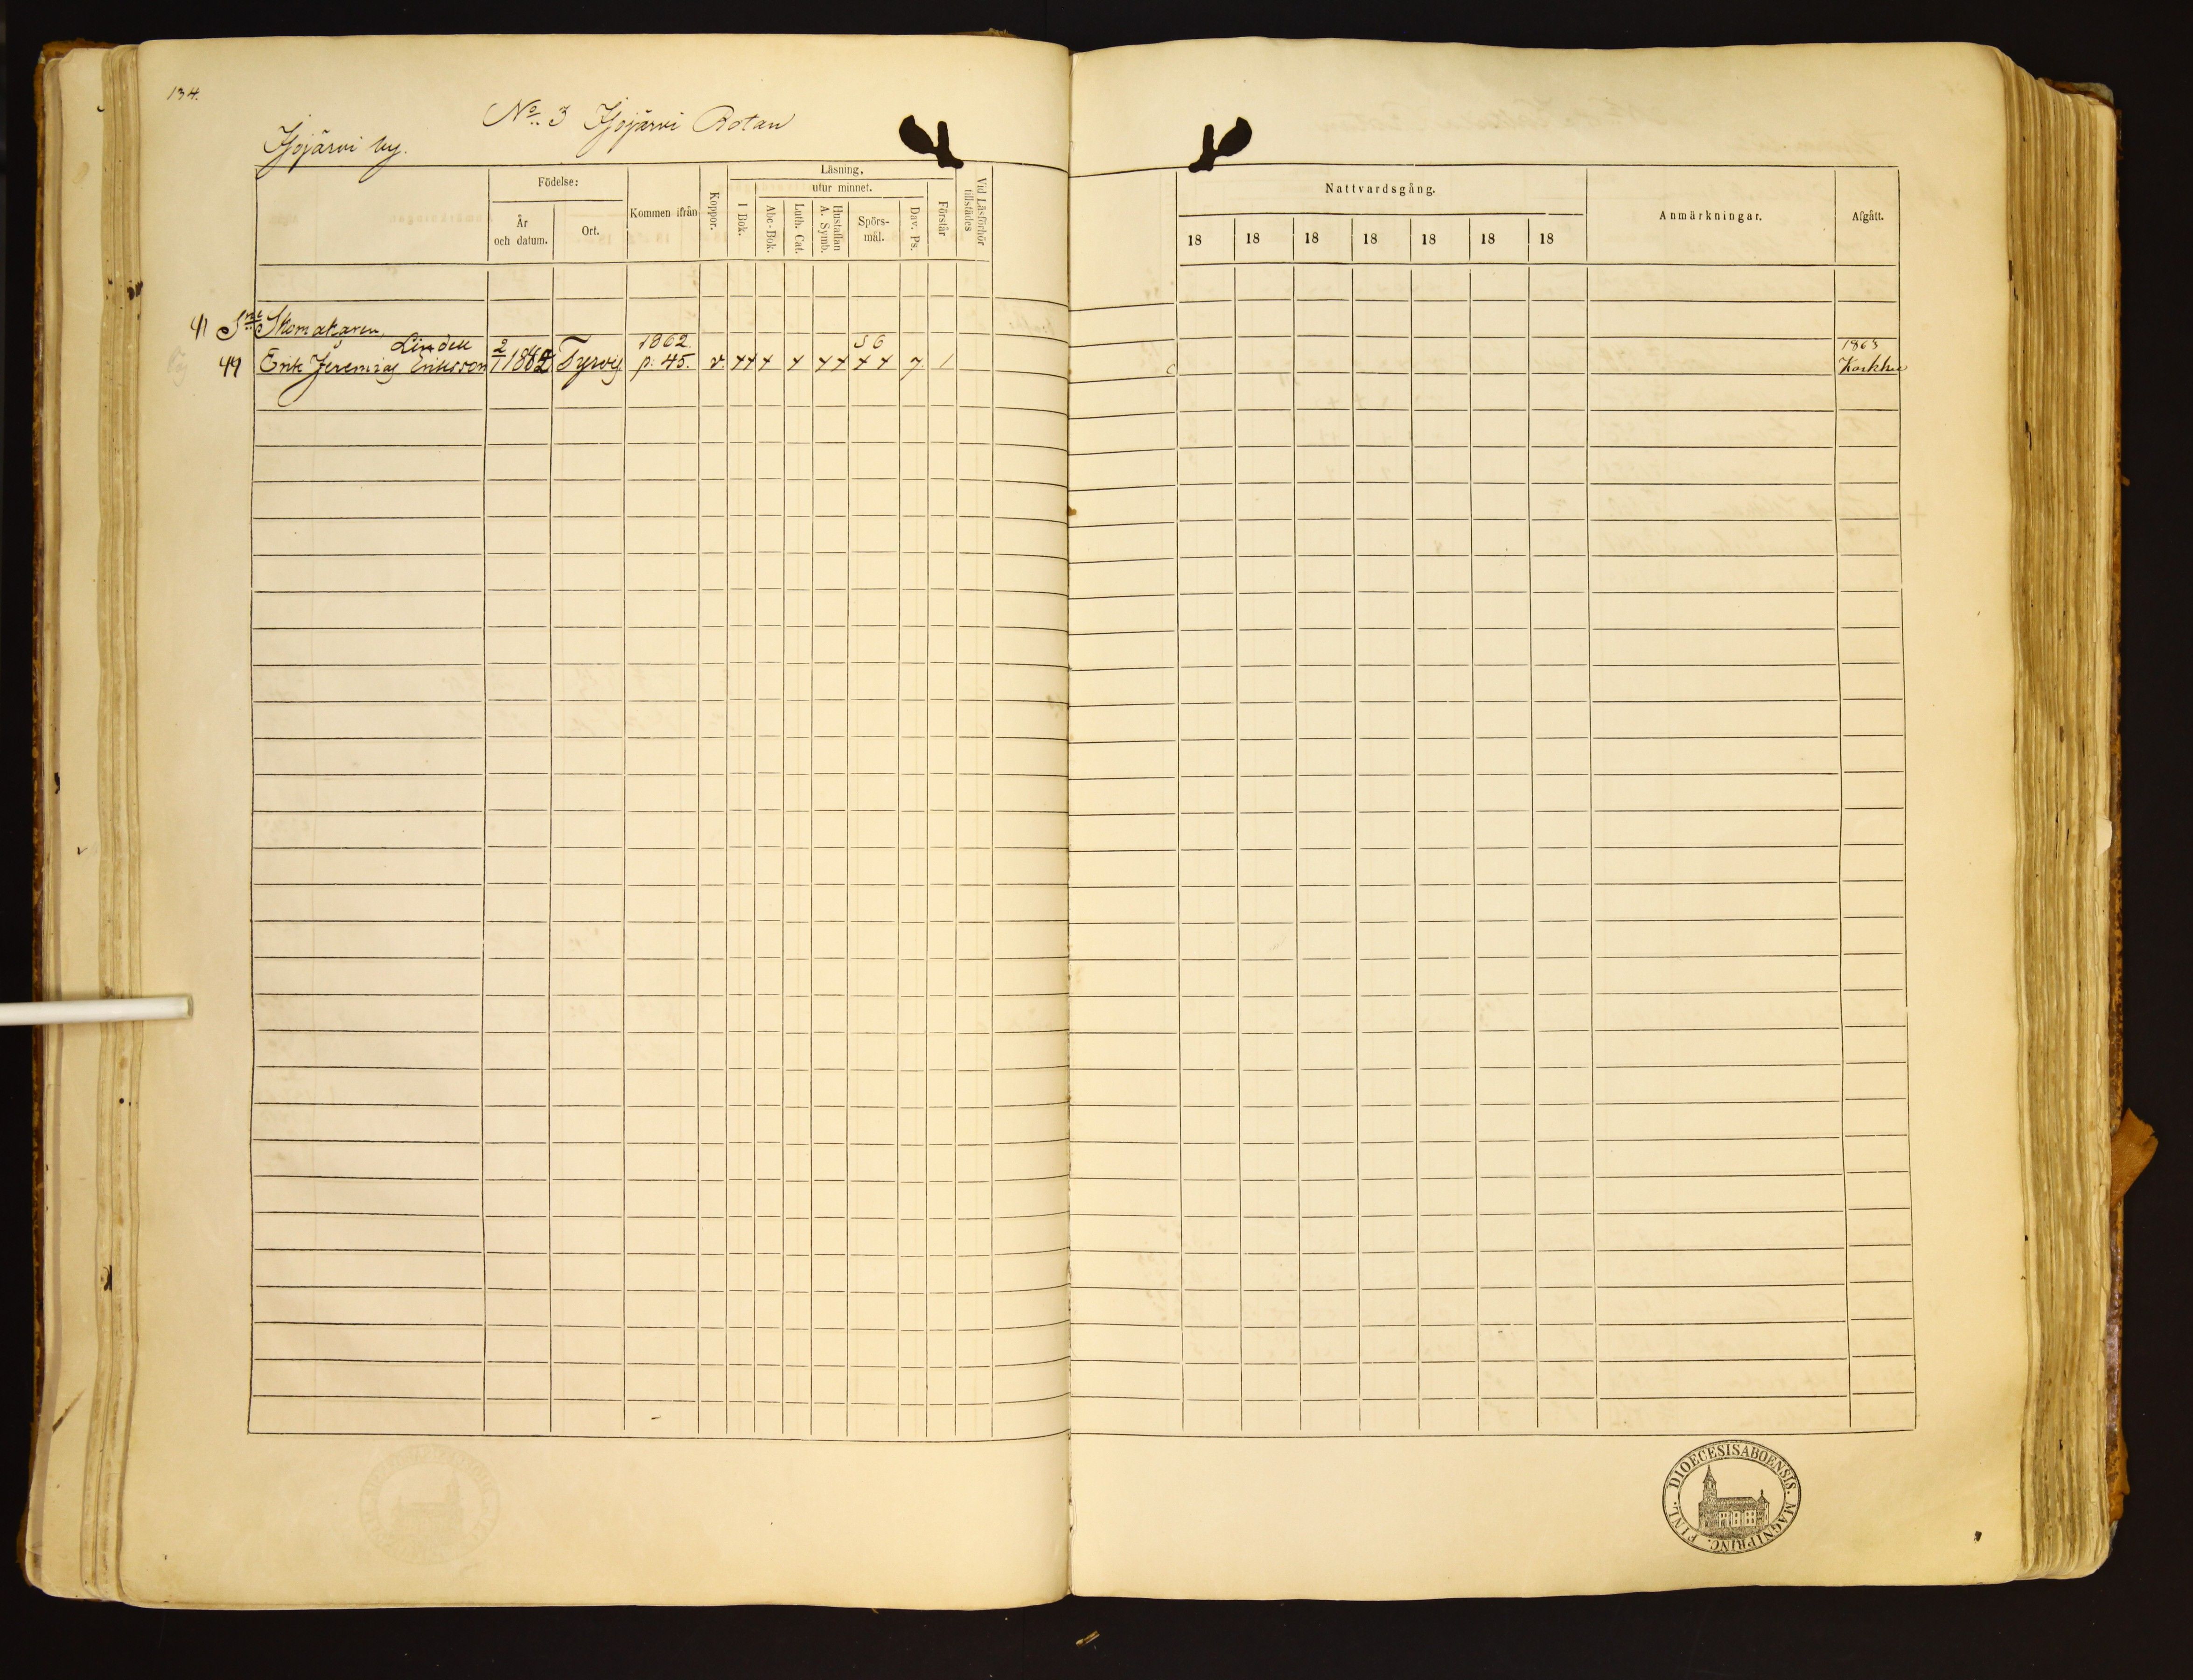 134.
No. 3 Jyöjärvi Rotan
Jyöjärvi by.
Födelse: Kommen ifrån Koppor. Läsning, Vid Läsförhör tillstädes
År och datum. Ort. I Bok. utur minnet. Förstår
Abc-Bok. Luth. Cat. Hustaflan A. Symb. Spörs-mål. Dav. Ps.
Nattvardsgång. Anmärkningar. Afgått.
18 18 18 18 18 18 18
41 Skomakaren
Lindell 1862. S G 1863
49 Erik Jeremias Eriksson Tyrvis p. 45. v. 1 Karkku
FINL. DIOECESIS ABOENSIS. MAGNI PRINC.